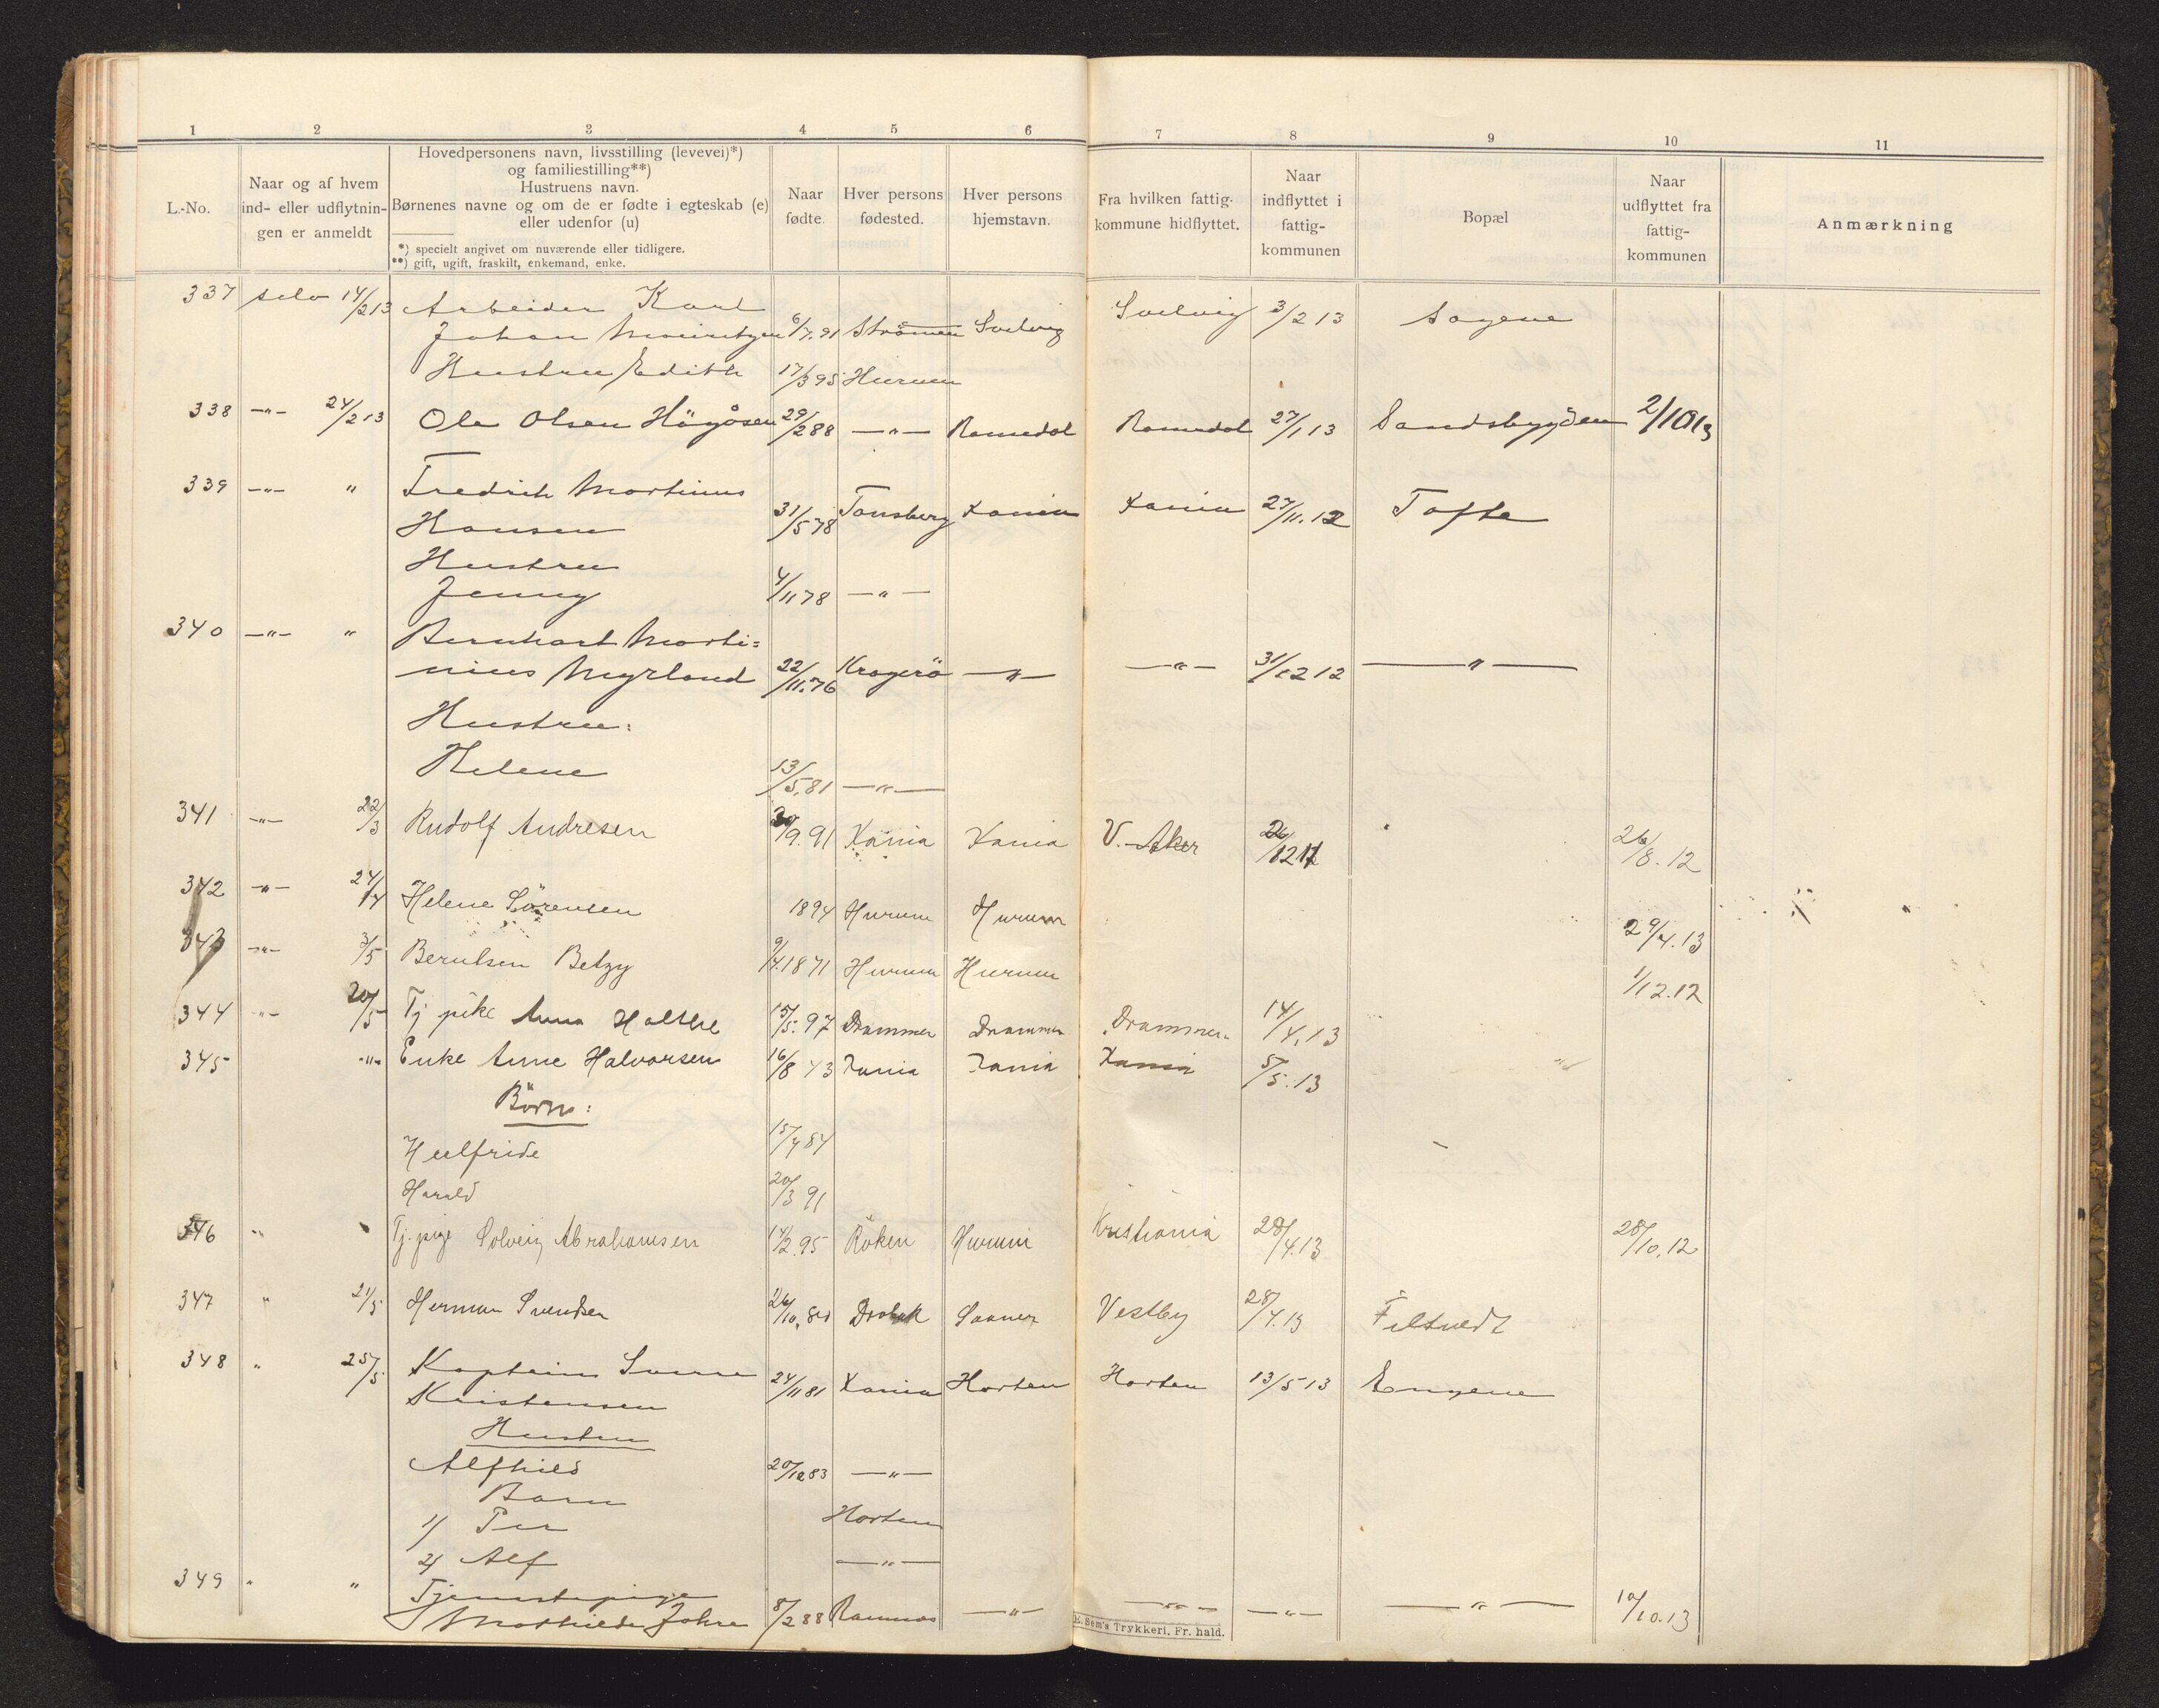 1 2 3 4 5 6 7 8 9 10 11
L.-No.
Naar og af hvem
ind- eller udflytnin-
gen er anmeldt
Hovedpersonens navn, livsstilling (levevei)*)
og familiestilling**)
Hustruens navn.
Børnenes navne og om de er fødte i egteskab (e)
eller udenfor (u)
*) specielt angivet om nuværende eller tidligere.
**) gift, ugift, fraskilt, enkemand, enke.
Naar
fødte.
Hver persons
fødested.
Hver persons
hjemstavn.
Fra hvilken fattig-
kommune hidflyttet.
Naar
indflyttet i
fattig-
kommunen
Bopæl
Naar
udflyttet fra
fattig-
kommunen
Anmærkning
337 selv 14/2 13 Arbeider Karl
Johan 6/7.91 Strömm Svelvig Svelvig 3/2 13 Sagene
Hustru Edith 17/3 95 Hurum
338 -"- 24/2 13 Ole Olsen Högåsen 29/2 88 -"- Romedal Romedal 27/1 13 Sandsbygden 2/10 13
339 -"- " Fredrik Martinius
Hansen 31/5 78 Tønsberg Xania Xania 27/11.12 Tofte
Hustru
Jenny 4/11 78 -"-
340 -"- " Bernhart Marti=
nius Myrland 22/11.76 Kragerö -"- -"- 31/12 12 -"-
Hustru:
Helene 13/5.81 -"-
341 -"- 22/3 Rudolf Andresen 30/9.91 Xania Xania V. Aker 26/8.12
342 -"- 24/4 Helene Sörensen 1894 Hurum Hurum 29/4.13
343 -"- 3/5 Berntsen Betzy 9/4.1871 Hurum Hurum 1/12.12
344 -"- 20/5 Tj pike Anna Holthe 15/5.97 Drammen Drammen Drammen 14/4.13
345 -"- Enke Anne Halvorsen 16/8 43 Xania Xania Xania 5/5.13
Börn:
Hulfride 15/4 84
Harald 20/3 91
346 " Tj. pige Solveig Abrahamsen 14/2.95 Röken Hurum Kristiania 28/4.13 28/10.12
347 " 21/5 Herman Svendsen 26/10. Drøbak Saaner Vestby 28/4.13 Filtvedt
348 " 25/5 Kaptein
Kristensen 24/11 81 Xania Horten Horten 13/5 13 Engene
Hustru
Alfhild 20/12 83 -"-
Barn
1/ Per Horten
2/ Alf -"-
349 " " Tjenestepige
Mathilde Johre 8/2 88 Ramnæs -"- -"- -"- -"- 10/10.13
E. Sem's Trykkeri, Fr. hald.